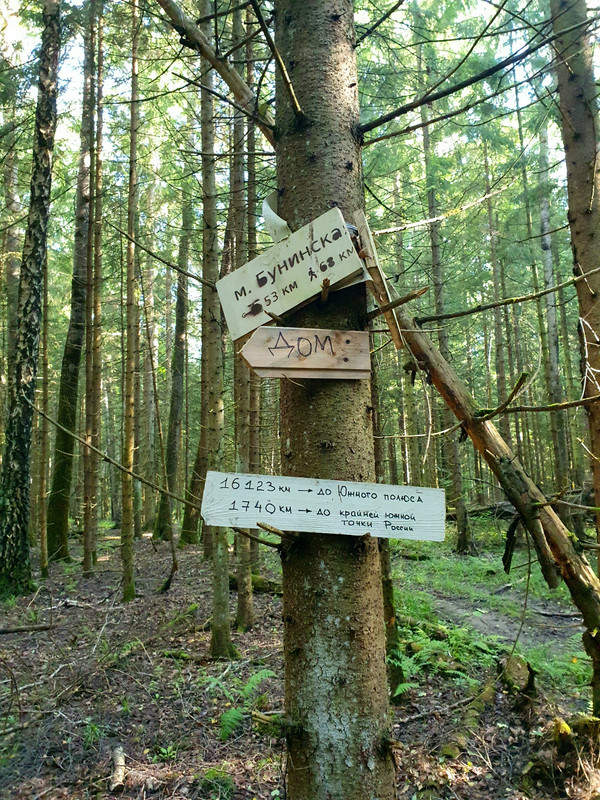 м. Бунинска
53 км 68 км
Дом
16123 км → до Южного полюса
1740 км → до крайней южной
точки России